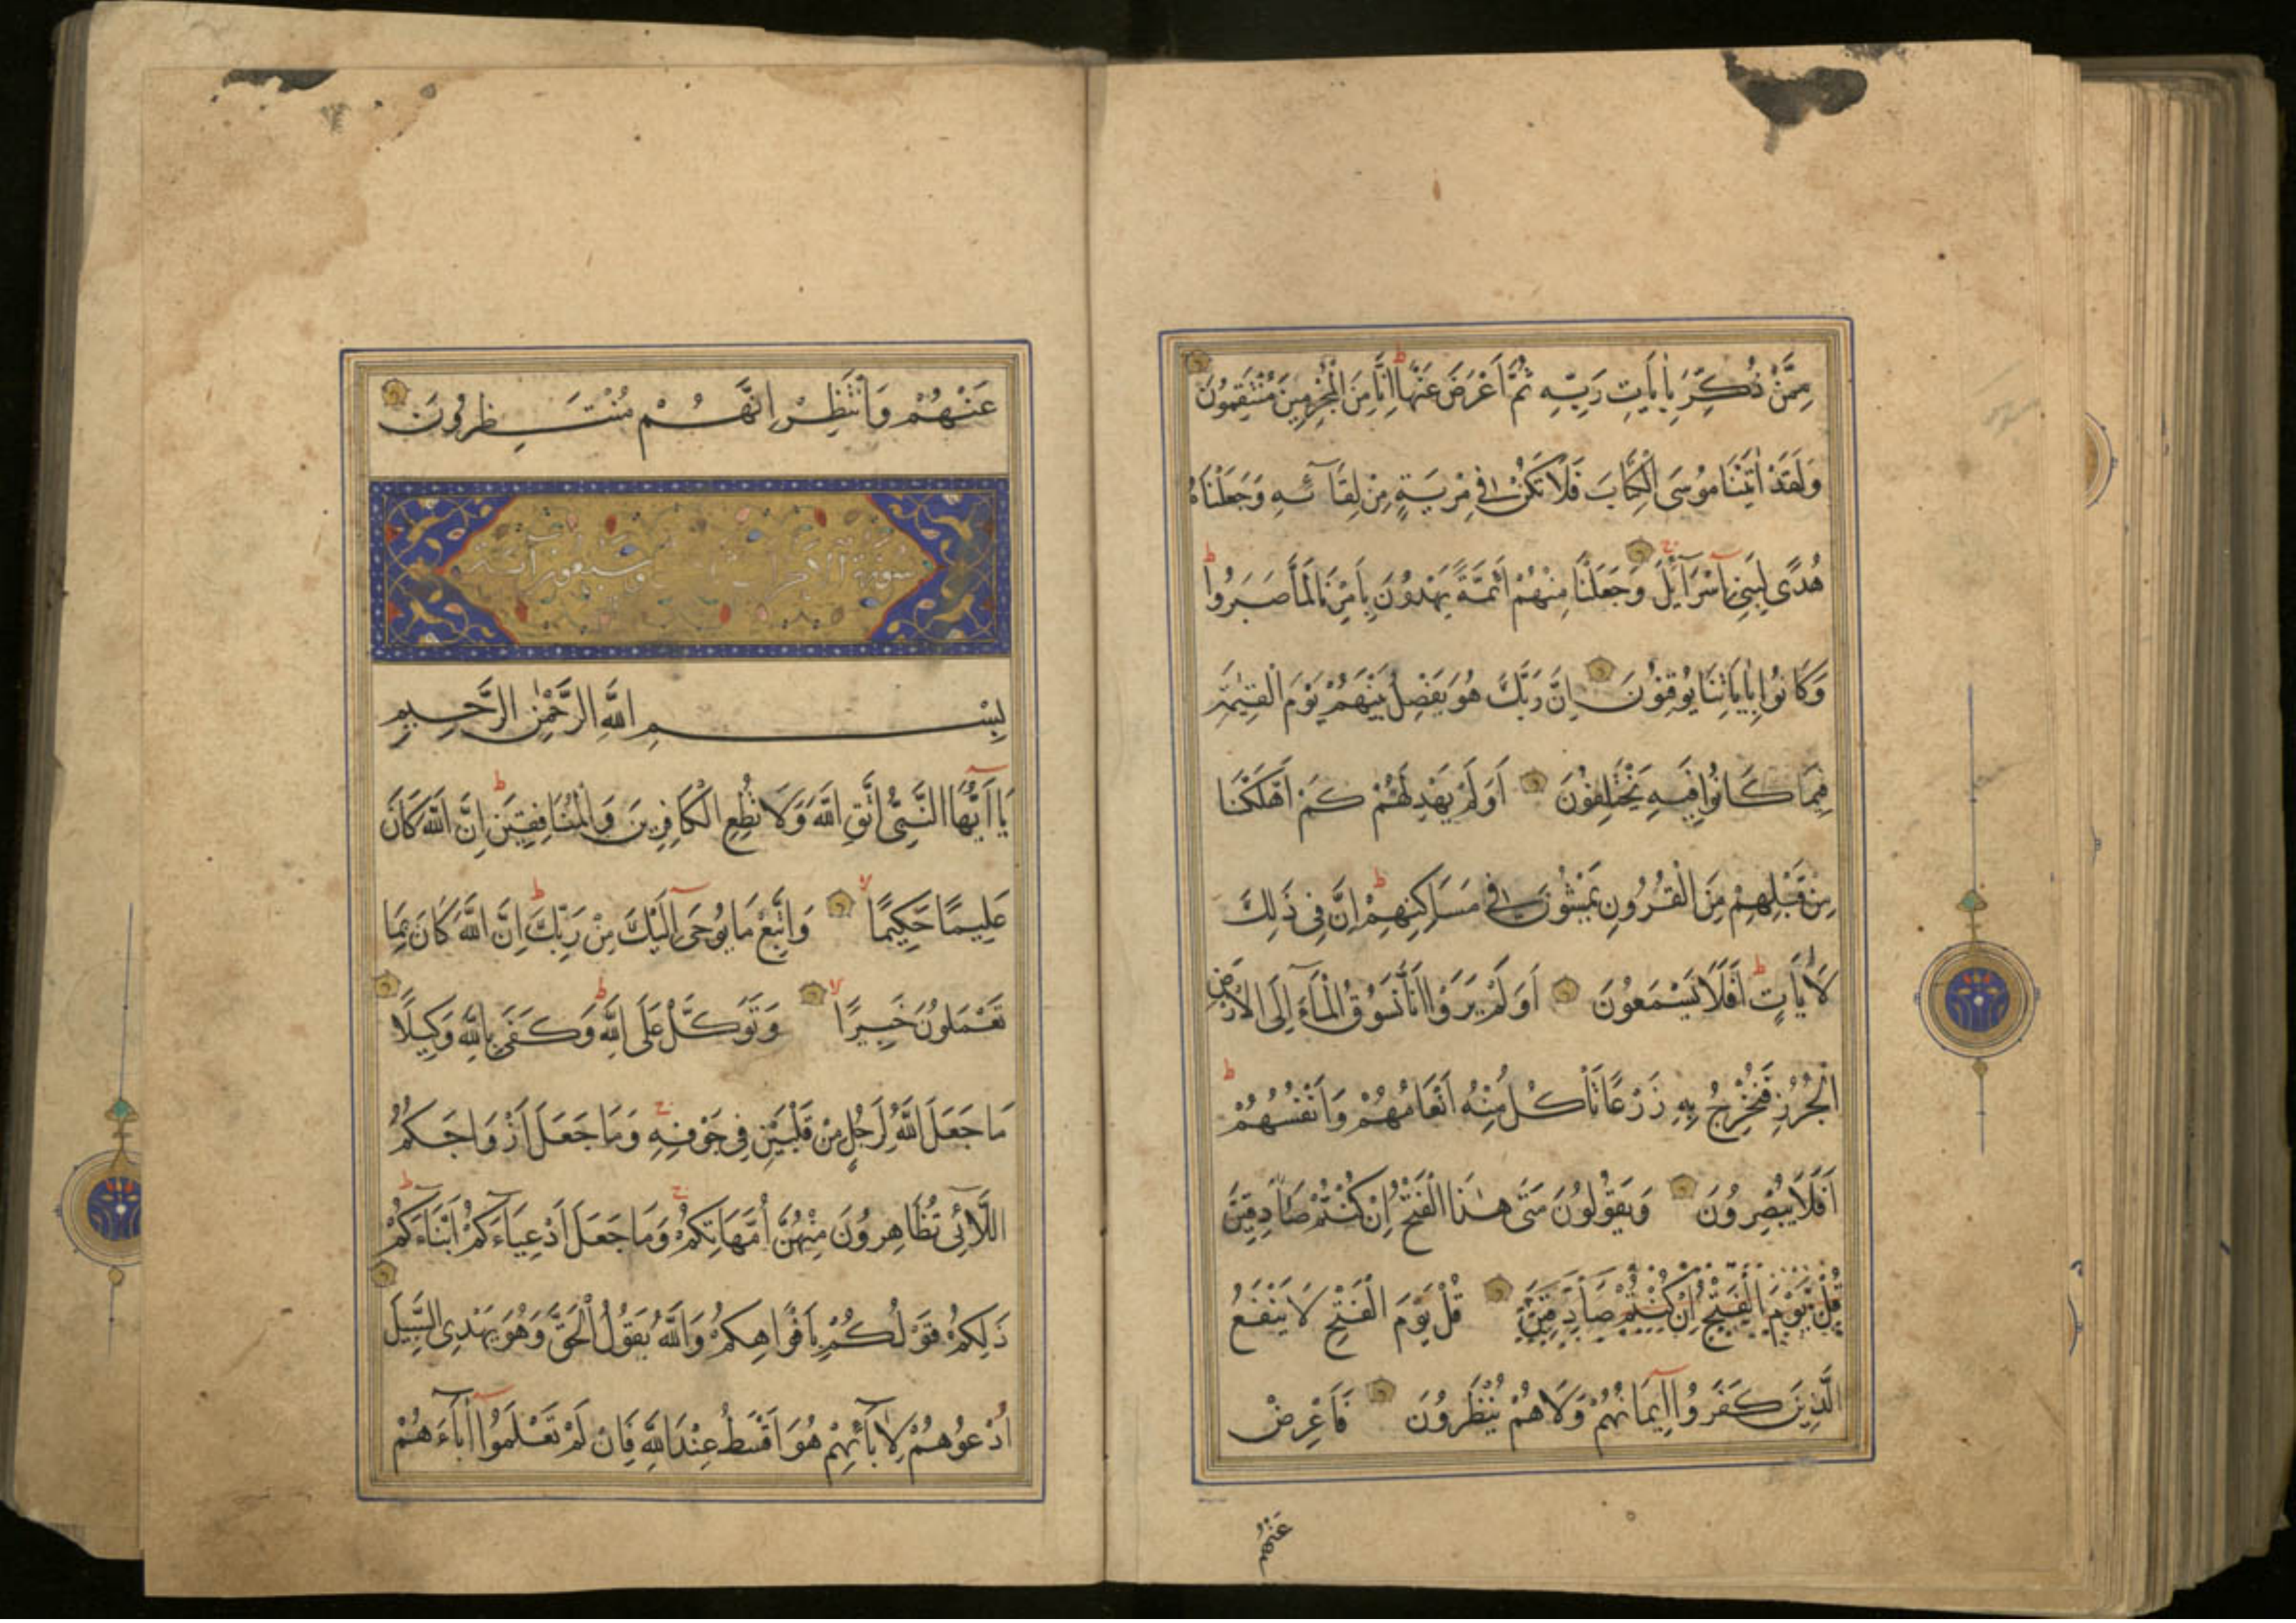 مِمَّنْ ذُكِّرَ بِاٰيَاتِ رَبِّهِ ثُمَّ اَعْرَضَ عَنْهَا اِنَّا مِنَ الْمُجْرِمِينَ مُنْتَقِمُونَ
وَلَقَدْ اٰتَيْنَا مُوسَى الْكِتَابَ فَلَا تَكُنْ فِي مِرْيَةٍ مِنْ لِقَآئِهِ وَجَعَلْنَاهُ
هُدًى لِبَنِي اِسْرَآئِلَ وَجَعَلْنَا مِنْهُمْ اَئِمَّةً يَهْدُونَ بِاَمْرِنَا لَمَّا صَبَرُوا
وَكَانُوا بِاٰيَاتِنَا يُوقِنُونَ اِنَّ رَبَّكَ هُوَ يَفْصِلُ بَيْنَهُمْ يَوْمَ الْقِيٰمَةِ
فِيمَا كَانُوا فِيهِ يَخْتَلِفُونَ اَوَلَمْ يَهْدِ لَهُمْ كَمْ اَهْلَكْنَا
مِنْ قَبْلِهِمْ مِنَ الْقُرُونِ يَمْشُونَ فِي مَسَاكِنِهِمْ اِنَّ فِي ذٰلِكَ
لَاٰيَاتٍ اَفَلَا يَسْمَعُونَ اَوَلَمْ يَرَوْا اَنَّا نَسُوقُ الْمَآءَ اِلَى الْاَرْضِ
الْجُرُزِ فَنُخْرِجُ بِهِ زَرْعًا تَاْكُلُ مِنْهُ اَنْعَامُهُمْ وَاَنْفُسُهُمْ
اَفَلَا يُبْصِرُونَ وَيَقُولُونَ مَتٰى هٰذَا الْفَتْحُ اِنْ كُنْتُمْ صَادِقِينَ
قُلْ يَوْمَ الْفَتْحِ اِنْ كُنْتُمْ صَادِقِينَ قُلْ يَوْمَ الْفَتْحِ لَا يَنْفَعُ
الَّذِينَ كَفَرُوا اِيمَانُهُمْ وَلَا هُمْ يُنْظَرُونَ فَاَعْرِضْ
عَنْهُمْ
عَنْهُمْ وَانْتَظِرْ اِنَّهُمْ مُنْتَظِرُونَ
سورة الاحزاب وسبعون آية
بِسْمِ اللّٰهِ الرَّحْمٰنِ الرَّحِيمِ
يَا اَيُّهَا النَّبِيُّ اتَّقِ اللّٰهَ وَلَا تُطِعِ الْكَافِرِينَ وَالْمُنَافِقِينَ اِنَّ اللّٰهَ كَانَ
عَلِيمًا حَكِيمًا وَاتَّبِعْ مَا يُوحٰى اِلَيْكَ مِنْ رَبِّكَ اِنَّ اللّٰهَ كَانَ بِمَا
تَعْمَلُونَ خَبِيرًا وَتَوَكَّلْ عَلَى اللّٰهِ وَكَفٰى بِاللّٰهِ وَكِيلًا
مَا جَعَلَ اللّٰهُ لِرَجُلٍ مِنْ قَلْبَيْنِ فِي جَوْفِهِ وَمَا جَعَلَ اَزْوَاجَكُمُ
اللَّآئِي تُظَاهِرُونَ مِنْهُنَّ اُمَّهَاتِكُمْ وَمَا جَعَلَ اَدْعِيَآءَكُمْ اَبْنَآءَكُمْ
ذٰلِكُمْ قَوْلُكُمْ بِاَفْوَاهِكُمْ وَاللّٰهُ يَقُولُ الْحَقَّ وَهُوَ يَهْدِي السَّبِيلَ
اُدْعُوهُمْ لِاٰبَآئِهِمْ هُوَ اَقْسَطُ عِنْدَ اللّٰهِ فَاِنْ لَمْ تَعْلَمُوا اٰبَآءَهُمْ